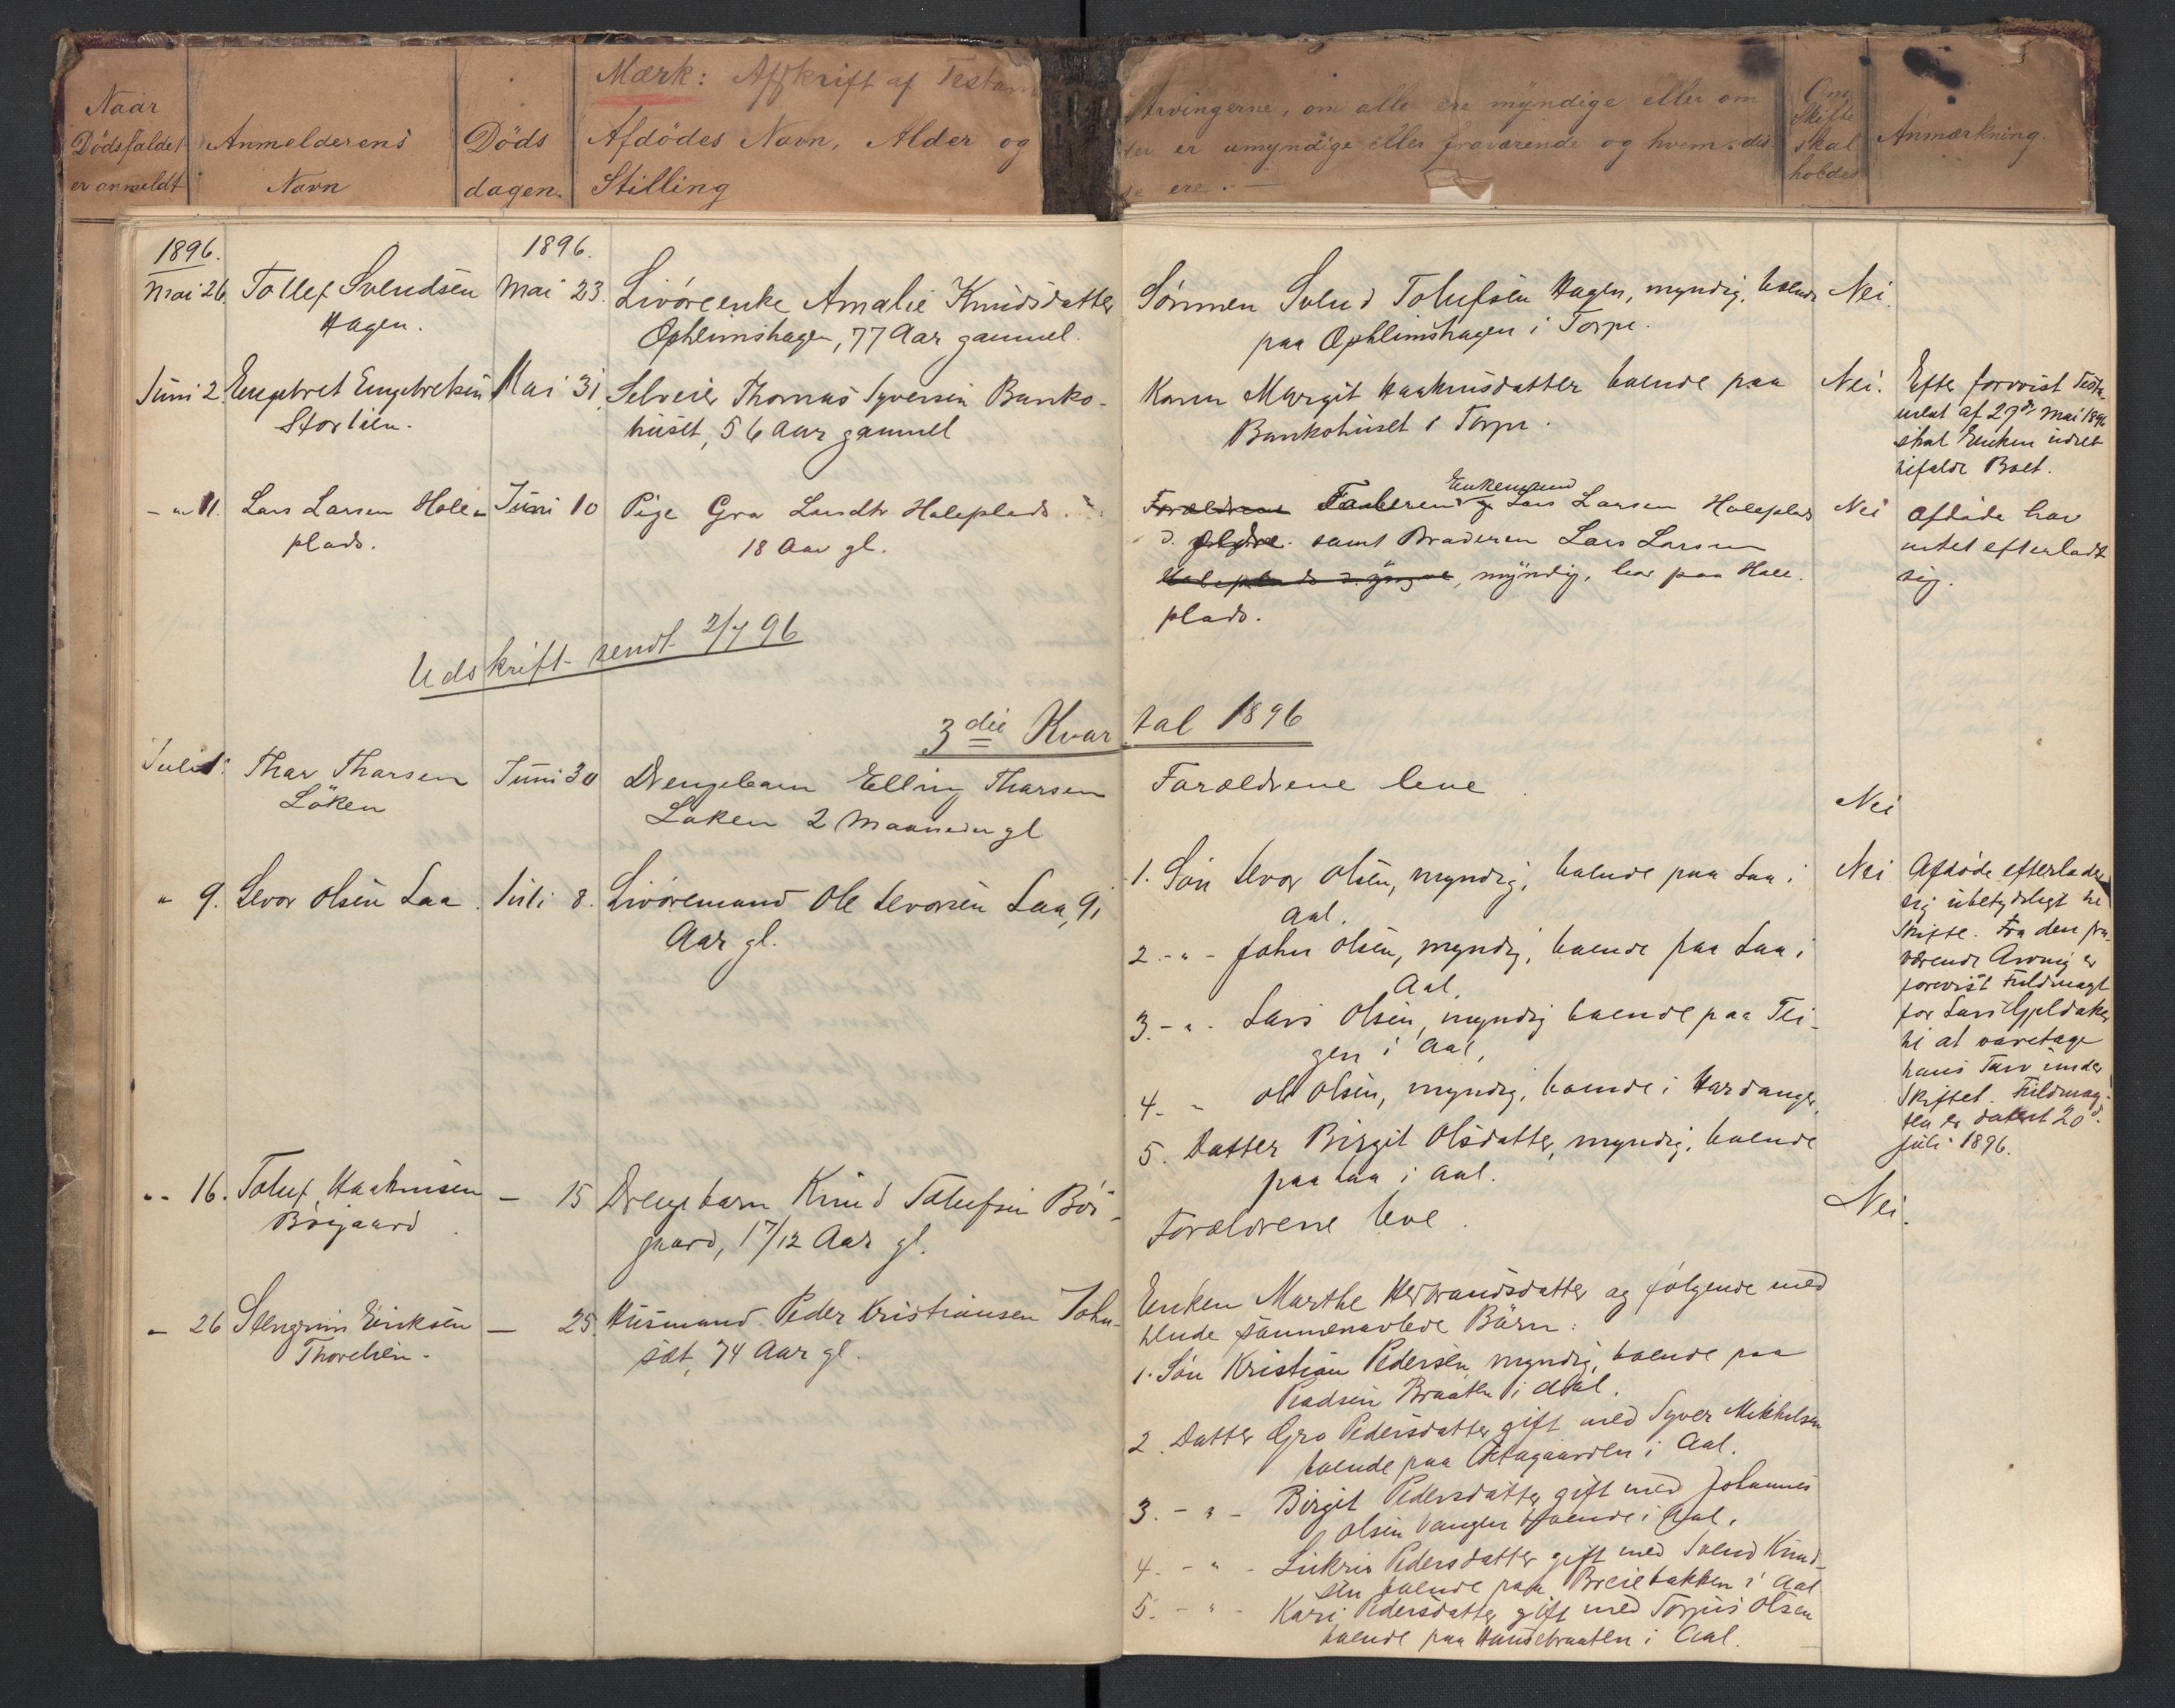 Mærk: Afskrift af Testam
Naar
Dödsfaldet
er anmeldt
Anmelderens
Navn
Döds
dagen.
Afdödes Navn, Alder og
Stilling
Arvingerne, om alle ere myndige eller om
er umyndige eller fraværende og hvem dis
se ere. —
Om
Skifte
skal
holdes
Anmærkning.
1896.
1896.
Mai 26.
Tollef Svendsen
Hagen.
Mai 23.
Livöreenke Amalie Knudsdatter
Opheimshagen, 77 Aar gammel.
Sönnen Svend Tolufsen Hagen, myndig, boende
paa Opheimshagen i Torpe.
Nei.
Juni 2.
Engebret Engebretsen
Storlien.
Mai 31.
Selveier Thomas Syversen Banko-
huset, 56 Aar gammel
Konen Margit Haakensdatter boende paa
Bankohuset i Torpe.
Nei.
Efter forevist Testa-
ment af 27de Mai 1896
skal Enken udelt
tilfalde Boet.
- " 11.
Lars Larsen Hole-
plads.
Juni 10
Pige Gro Larsdtr Holeplads.
18 Aar gl.
Enkemand
Forældrene Faderen og Lars Larsen Holeplads
d. ældre. samt Broderen Lars Larsen
Holeplads d. yngre, myndig, bor paa Hole-
plads.
Nei
Afdöde har
intet efterladt
sig.
Udskrift sendt 2/7 96
3die Kvartal 1896
Juli 1.
Thor Thorsen
Löken
Juni 30
Drengebarn Elling Thorsen
Löken 2 Maaneder gl
Forældrene leve
Nei
" 9.
Levor Olsen Laa.
Juli 8.
Livöremand Ole Levorsen Laa, 91
Aar gl.
1. Sön Levor Olsen, myndig, boende paa Laa i
Aal.
2. - " - John Olsen, myndig, boende paa Laa i
Aal.
3. - " - Lars Olsen, myndig boende paa Tei-
gen i Aal,
4. - Ole Olsen, myndig, boende i Hardanger,
5. Datter Birgit Olsdatter, myndig, boende
paa Laa i Aal.
Nei
Afdöde efterlader
sig ubetydeligt til
Skifte. Fra den fra-
værende Arving er
forevist Fuldmagt
for Lars Gjeldaker
til at varetage
hans Tarv under
Skiftet. Fuldmag-
ten er dateret 20d
Juli 1896.
" - 16.
Toluf Haakensen
Böigaard
— 15
Drengebarn Knud Tolufsen Böi-
gaard, 1 7/12 Aar gl.
Forældrene leve.
Nei.
- 26
Stengrim Eriksen
Thorelien.
— 25.
Husmand Peder Kristiansen John-
söt, 74 Aar gl.
Enken Marthe Herbrandsdatter og fölgende med
hende sammenavlede Börn:
1. Sön Kristian Pedersen, myndig, boende paa
Braaten i Aal.
2. Datter Gro Pedersdatter gift med Syver Mikkelsen
boende paa i Aal.
3. - " - Birgit Pedersdatter gift med Johannes
Olsen Vangen boende i Aal.
4. - " - Pedersdatter gift med Svend Knud-
sen boende paa Breiebakken i Aal
5. - " - Kari Pedersdatter gift med Torjus Olsen
boende paa Handebraaten i Aal.